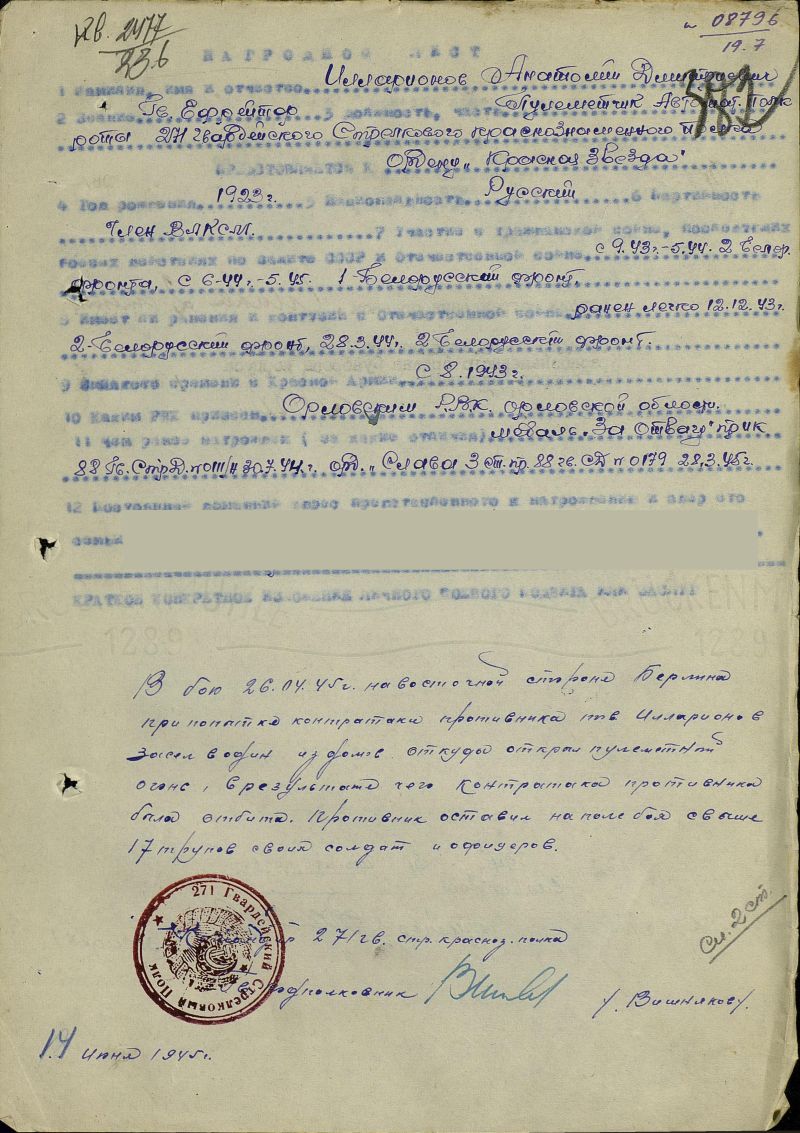 кв. 2477
23.6
н 08796
19.7
НАГРОДНОЙ ЛИСТ
Илларионов Анатолий Дмитриевич
1 Фамилия, имя и отчество
Гв. Ефрейтор Пулеметчик Автомат. Полк
2 Звание 3 должность, часть
роты 271 гвардейского Стрелкового краснознаменного полка
Ордену „Красная Звезда"
ПРЕДСТАВЛЯЕТСЯ К
1923 г. Русский
4 Год рождения 5 Национальность 6 Партийность
Член ВЛКСМ.
7 Участие в гражданской войне, последующих
боевых действиях по защите СССР и Отечественной войне с 9.43-5.44. 2 Белор.
фронта, с 6-44г.-5.45. 1 Белорусский фронт.
8 Имеет ли ранения и контузии в Отечественной войне ранен легко 12.12.43г.
2-Белорусский фронт, 28.3.44г. 2 Белорусский фронт.
с 8.1943г.
9 С какого времени в Красной Армии
Орловским Р.В.К. Орловской области.
10 Каким РВК призван
11 Чем ранее награжден (за какие отличия) медаль „За Отвагу" прик
88 Гв. Стр Д. п 011/н 30.7.44.г. орд. „Слава 3 ст. пр. 88 гв. СД п 0179 28.3.45г.
12 Постоянный домашний адрес представленного к награждению и адрес его
семьи
КРАТКОЕ КОНКРЕТНОЕ ИЗЛОЖЕНИЕ ЛИЧНОГО БОЕВОГО ПОДВИГА ИЛИ ЗАСЛУГ
1289
1289
В бою 26.04.45г. на восточной стороне Берлина
при попытке контратаки противника тов Илларионов
засел в один из домов откуда открыл пулеметный
огонь, в результате чего контратака противника
была отбита. Противник оставил на поле боя свыше
17 трупов своих солдат и офицеров.
271 Гвардейский Стрелковый Полк
Командир 271 гв. стр. красноз. полка
гв. подполковник /Вишняков/.
См. 2 ст.
14 июня 1945г.